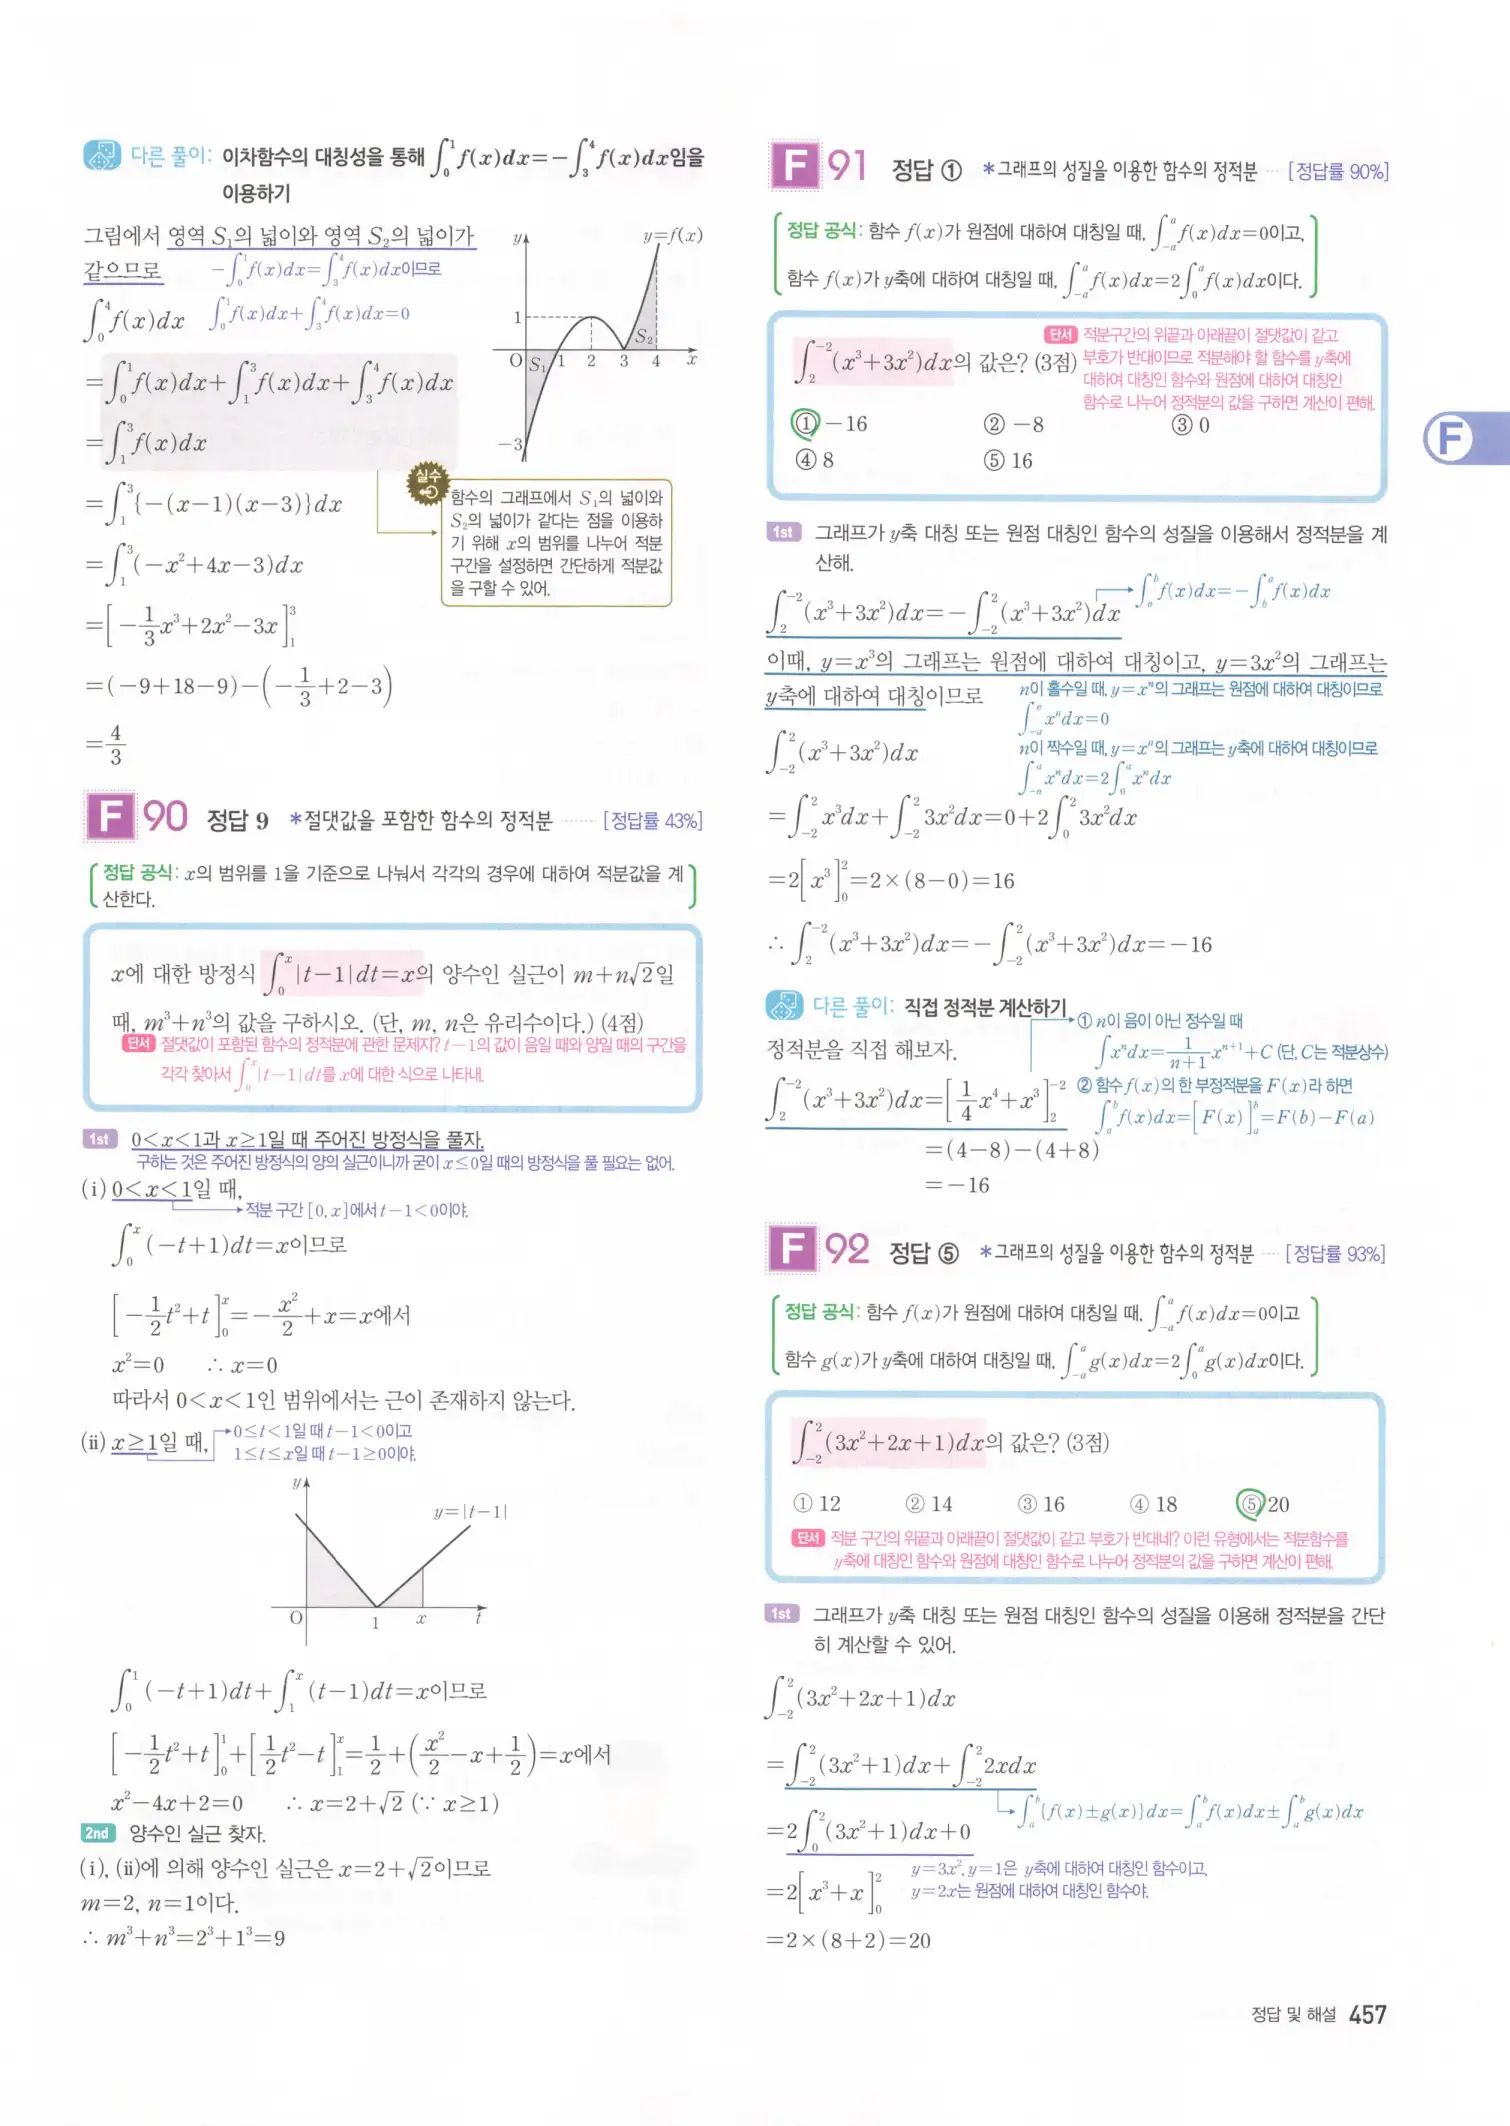 다른 풀이: 이차함수의 대칭성을 통해 ∫₀¹ f(x)dx=−∫₃⁴ f(x)dx임을
이용하기
그림에서 영역 S₁의 넓이와 영역 S₂의 넓이가
같으므로 −∫₀¹ f(x)dx=∫₃⁴ f(x)dx이므로
∫₀⁴ f(x)dx ∫₀¹ f(x)dx+∫₃⁴ f(x)dx=0
=∫₀¹ f(x)dx+∫₁³ f(x)dx+∫₃⁴ f(x)dx
=∫₁³ f(x)dx
=∫₁³ {−(x−1)(x−3)}dx
=∫₁³ (−x²+4x−3)dx
=[−1/3 x³+2x²−3x]₁³
=(−9+18−9)−(−1/3+2−3)
=4/3
y y=f(x)
1
S₂
O S₁ 1 2 3 4 x
−3
실수
함수의 그래프에서 S₁의 넓이와
S₂의 넓이가 같다는 점을 이용하
기 위해 x의 범위를 나누어 적분
구간을 설정하면 간단하게 적분값
을 구할 수 있어.
F 90 정답 9 *절댓값을 포함한 함수의 정적분 ······ [정답률 43%]
정답 공식: x의 범위를 1을 기준으로 나눠서 각각의 경우에 대하여 적분값을 계
산한다.
x에 대한 방정식 ∫₀ˣ |t−1|dt=x의 양수인 실근이 m+n√2일
때, m³+n³의 값을 구하시오. (단, m, n은 유리수이다.) (4점)
단서 절댓값이 포함된 함수의 정적분에 관한 문제지? t−1의 값이 음일 때와 양일 때의 구간을
각각 찾아서 ∫₀ˣ |t−1|dt를 x에 대한 식으로 나타내.
1st 0<x<1과 x≥1일 때 주어진 방정식을 풀자.
구하는 것은 주어진 방정식의 양의 실근이니까 굳이 x≤0일 때의 방정식을 풀 필요는 없어.
(ⅰ) 0<x<1일 때,
적분 구간 [0, x]에서 t−1<0이야.
∫₀ˣ (−t+1)dt=x이므로
[−1/2 t²+t]₀ˣ=−x²/2+x=x에서
x²=0 ∴ x=0
따라서 0<x<1인 범위에서는 근이 존재하지 않는다.
(ⅱ) x≥1일 때, 0≤t<1일 때 t−1<0이고
1≤t≤x일 때 t−1≥0이야.
y
y=|t−1|
O 1 x t
∫₀¹ (−t+1)dt+∫₁ˣ (t−1)dt=x이므로
[−1/2 t²+t]₀¹+[1/2 t²−t]₁ˣ=1/2+(x²/2−x+1/2)=x에서
x²−4x+2=0 ∴ x=2+√2 (∵ x≥1)
2nd 양수인 실근 찾자.
(ⅰ), (ⅱ)에 의해 양수인 실근은 x=2+√2이므로
m=2, n=1이다.
∴ m³+n³=2³+1³=9
F 91 정답 ① *그래프의 성질을 이용한 함수의 정적분 ··· [정답률 90%]
정답 공식: 함수 f(x)가 원점에 대하여 대칭일 때, ∫₋ₐᵃ f(x)dx=0이고,
함수 f(x)가 y축에 대하여 대칭일 때, ∫₋ₐᵃ f(x)dx=2∫₀ᵃ f(x)dx이다.
∫₂⁻² (x³+3x²)dx의 값은? (3점)
단서 적분구간의 위끝과 아래끝이 절댓값이 같고
부호가 반대이므로 적분해야 할 함수를 y축에
대하여 대칭인 함수와 원점에 대하여 대칭인
함수로 나누어 정적분의 값을 구하면 계산이 편해.
① −16 ② −8 ③ 0
④ 8 ⑤ 16
1st 그래프가 y축 대칭 또는 원점 대칭인 함수의 성질을 이용해서 정적분을 계
산해.
∫₂⁻² (x³+3x²)dx=−∫₋₂² (x³+3x²)dx ∫ₐᵇ f(x)dx=−∫ᵦᵃ f(x)dx
이때, y=x³의 그래프는 원점에 대하여 대칭이고, y=3x²의 그래프는
y축에 대하여 대칭이므로
n이 홀수일 때, y=xⁿ의 그래프는 원점에 대하여 대칭이므로
∫₋ₐᵃ xⁿdx=0
n이 짝수일 때, y=xⁿ의 그래프는 y축에 대하여 대칭이므로
∫₋ₐᵃ xⁿdx=2∫₀ᵃ xⁿdx
∫₋₂² (x³+3x²)dx
=∫₋₂² x³dx+∫₋₂² 3x²dx=0+2∫₀² 3x²dx
=2[x³]₀²=2×(8−0)=16
∴ ∫₂⁻² (x³+3x²)dx=−∫₋₂² (x³+3x²)dx=−16
다른 풀이: 직접 정적분 계산하기
정적분을 직접 해보자.
① n이 음이 아닌 정수일 때
∫xⁿdx=1/(n+1) xⁿ⁺¹+C (단, C는 적분상수)
② 함수 f(x)의 한 부정적분을 F(x)라 하면
∫ₐᵇ f(x)dx=[F(x)]ₐᵇ=F(b)−F(a)
∫₂⁻² (x³+3x²)dx=[1/4 x⁴+x³]₂⁻²
=(4−8)−(4+8)
=−16
F 92 정답 ⑤ *그래프의 성질을 이용한 함수의 정적분 ··· [정답률 93%]
정답 공식: 함수 f(x)가 원점에 대하여 대칭일 때, ∫₋ₐᵃ f(x)dx=0이고
함수 g(x)가 y축에 대하여 대칭일 때, ∫₋ₐᵃ g(x)dx=2∫₀ᵃ g(x)dx이다.
∫₋₂² (3x²+2x+1)dx의 값은? (3점)
① 12 ② 14 ③ 16 ④ 18 ⑤ 20
단서 적분 구간의 위끝과 아래끝이 절댓값이 같고 부호가 반대네? 이런 유형에서는 적분함수를
y축에 대칭인 함수와 원점에 대칭인 함수로 나누어 정적분의 값을 구하면 계산이 편해.
1st 그래프가 y축 대칭 또는 원점 대칭인 함수의 성질을 이용해 정적분을 간단
히 계산할 수 있어.
∫₋₂² (3x²+2x+1)dx
=∫₋₂² (3x²+1)dx+∫₋₂² 2xdx
∫ₐᵇ {f(x)±g(x)}dx=∫ₐᵇ f(x)dx±∫ₐᵇ g(x)dx
=2∫₀² (3x²+1)dx+0
y=3x², y=1은 y축에 대하여 대칭인 함수이고,
y=2x는 원점에 대하여 대칭인 함수야.
=2[x³+x]₀²
=2×(8+2)=20
F
정답 및 해설 457